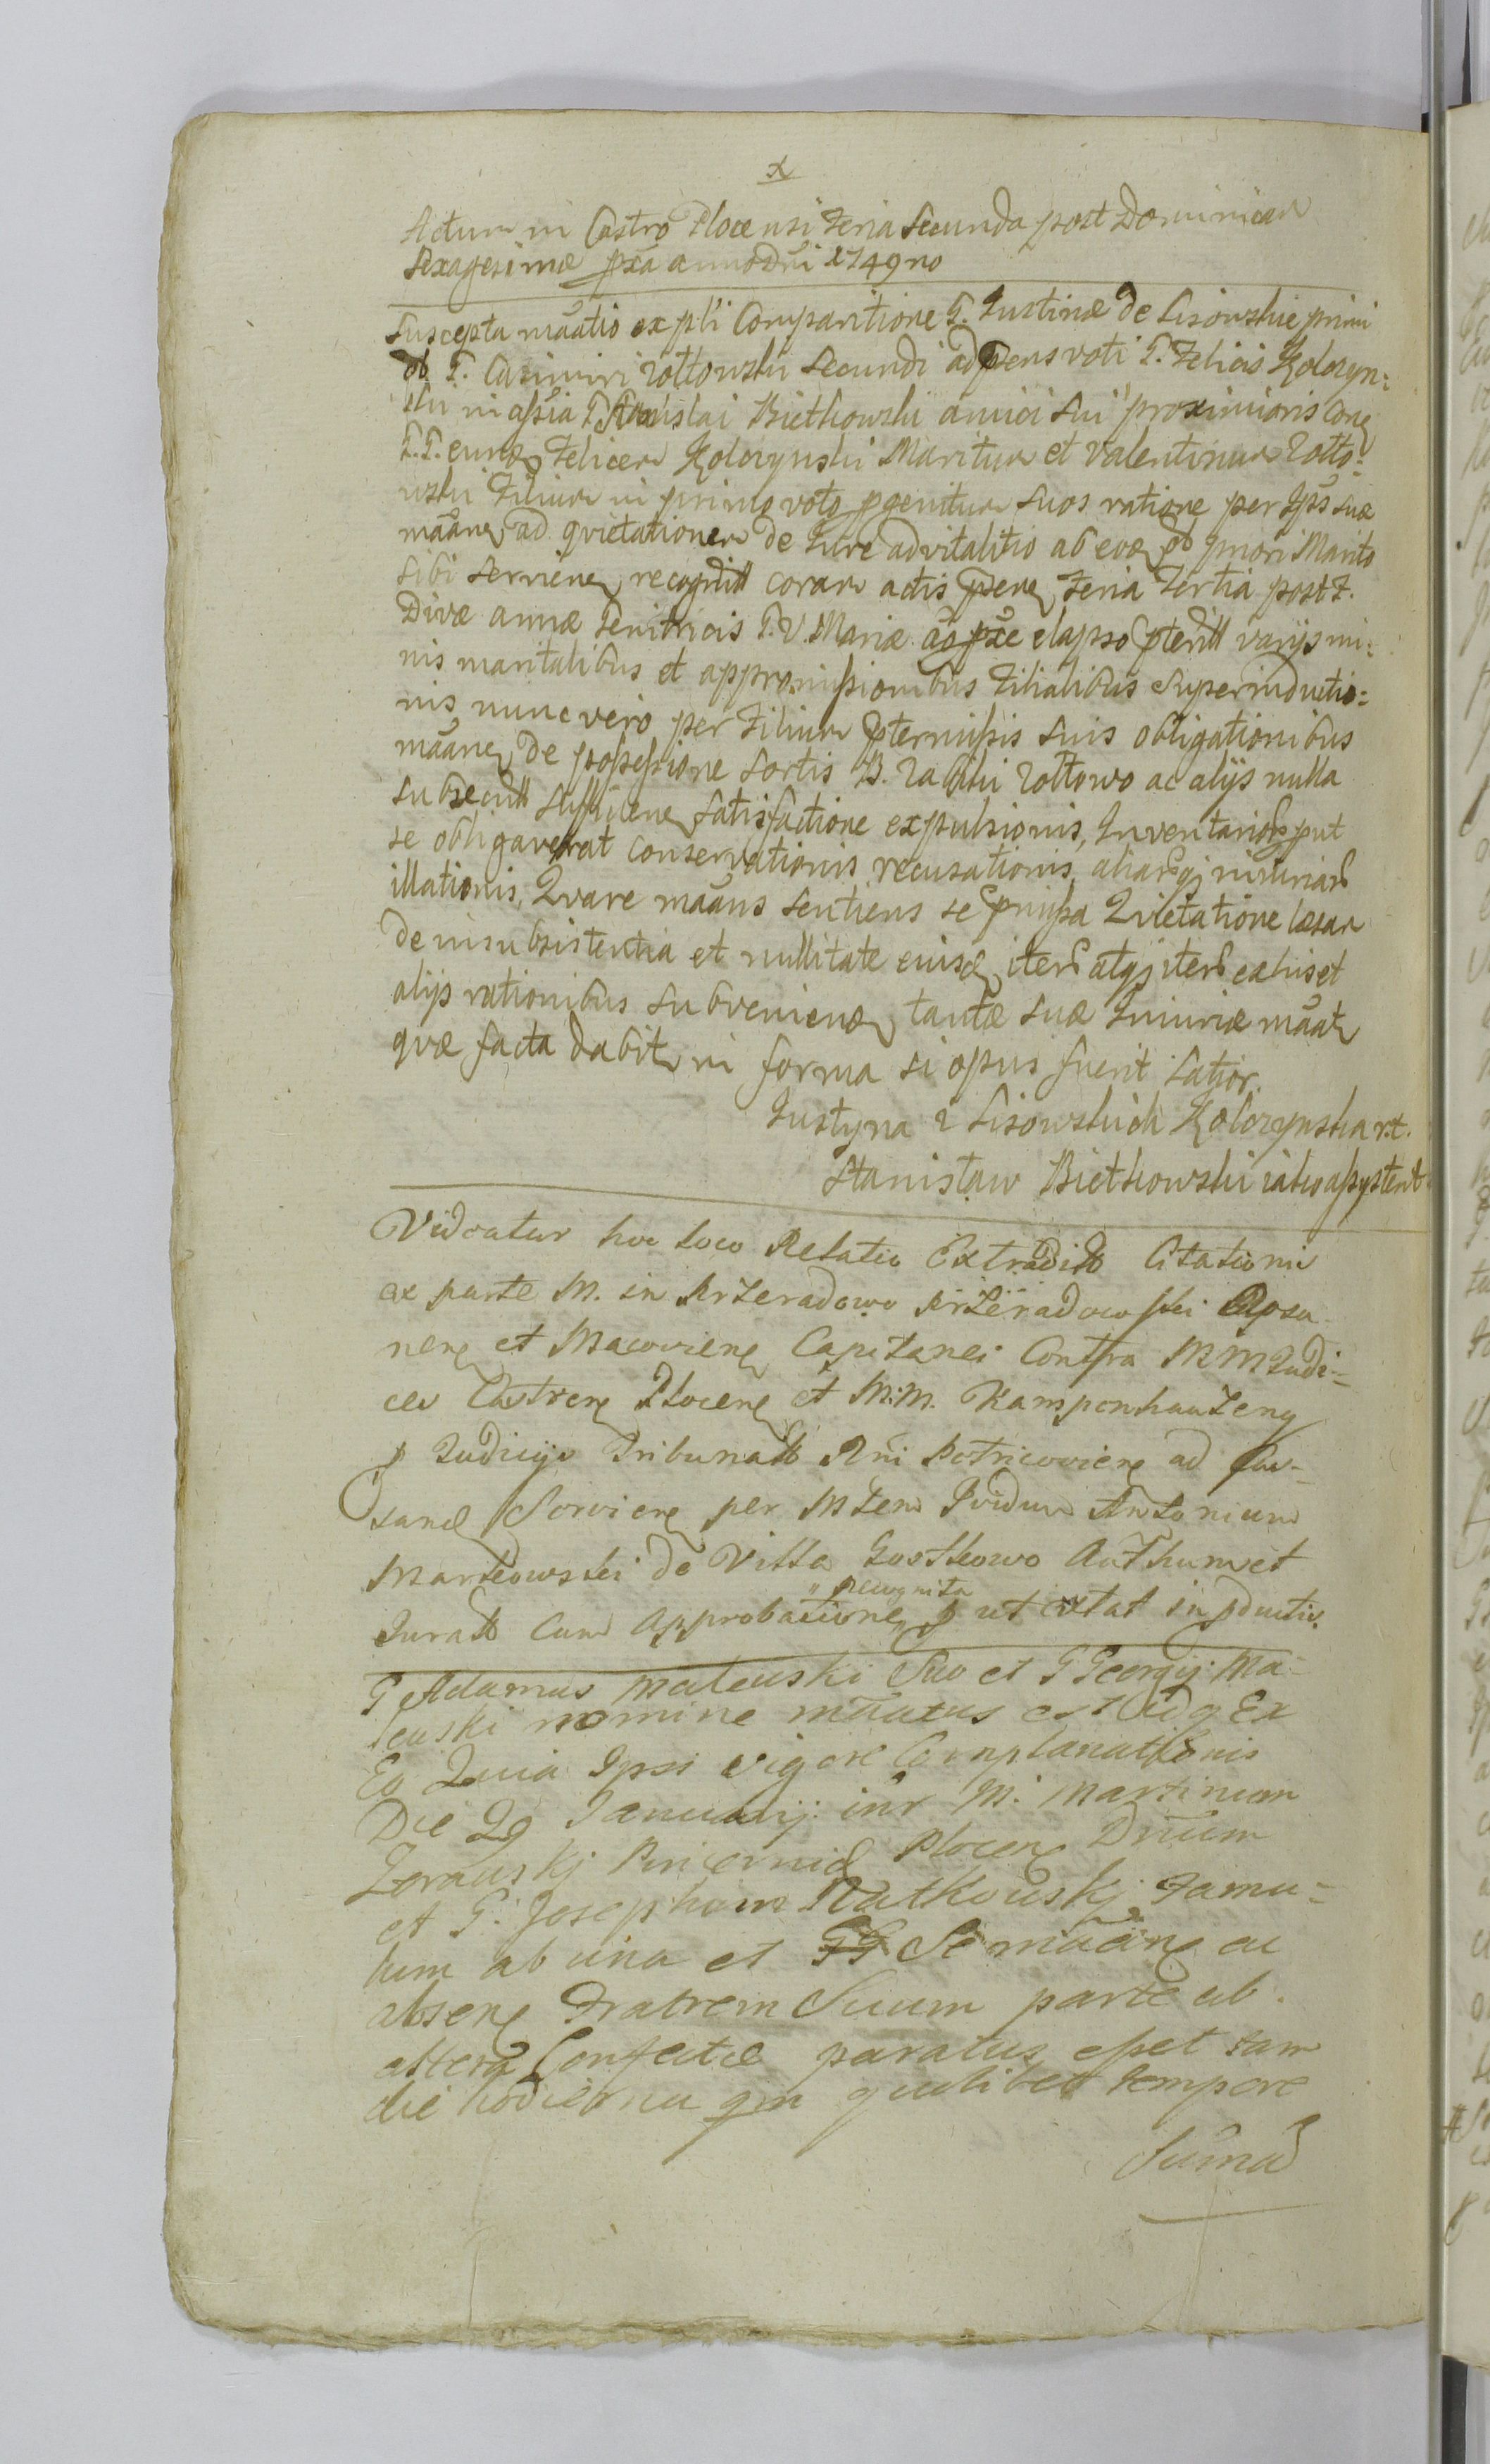 x
Actum in Castro Plocensi Feria Secunda post Dominicam
Sexagesimæ pxa anno Dni 1749no
Suscepta māātio ex pti Comparitione G. Justinæ de Lisowskie primi
G. Casimiri Zołtowski Secundi ad pens voti G. Felicis Kolczyn=
ski in assia G. Stanislai Bietkowski amici sui proximioris Cong
G.G. eund Felicem Kolczynski Maritum et Valentinum Zołto=
wski Filium in primo voto pgenitum suos ratione per Ipss suæ
māāneg ad qvietationem de Jure advitalitio ab eod ob priori Marito
sibi servieng recognitt coram actis pseng Feria Tertia post F.
Divæ annæ Genitricis B. V. Mariæ ao pxe elapso pteritt varijs mi=
nis maritalibus et appromissionibus Filialibus Superinductio=
nis nunc vero per Filium ptermissis suis obligationibus
māāneg de possessione sortis B. Zabiki Zołtowo ac alijs nulla
subsecutt sufficieng satisfactione expulsionis, Inventariorb put
se obligaverat conservationis recusationis, aliarbqj iniuriarb
illationis, Qvare māāns sentiens se pmissa Qvietatione læsam
de insubsistentia et nullitate eiusd iterb atqj iterb ex his et
alijs rationibus subveniend tantæ suæ Iniuriæ māāt
qvæ facta dabit in forma si opus fuerit latior.
Justyna z Lisowskich Kolczynska r.t.
Stanisław Bietkowski iako assystent
Videatur hoc loco Relatio Extraditt Citationis
ex parte M. in Krzeradowo Krzeradowski Rosa
neng et Macovieng Capitanei Contra M M Judi=
ces Castreng Ploceng et M.M. Kampenhauzeng
p Judicijs Tribunatt Rni Petricovieng ad Cau=
sand Servieng per Mtem Pvidum Antonium
Markowski de Villa Gostkowo Authum et
recognita
Juratt cum approbatione p ut citat inpductio.
G Adamus Mateuski Suo et G Georgij Ma=
teuski nomine māātus est Idq Ex
Eo Quia Ipsi vigore Complanationis
Die 29 Januarij inr M. Martinum
Zorauskj Pincernid Ploceng Dnum
et G. Josephum Rutkouskj Famu=
lum ab una et Se māāng ac
abseng Fratrem Suum parte ab
altera Confectæ paratus esset tam
die hodierna qm quolibet tempore
Sumad